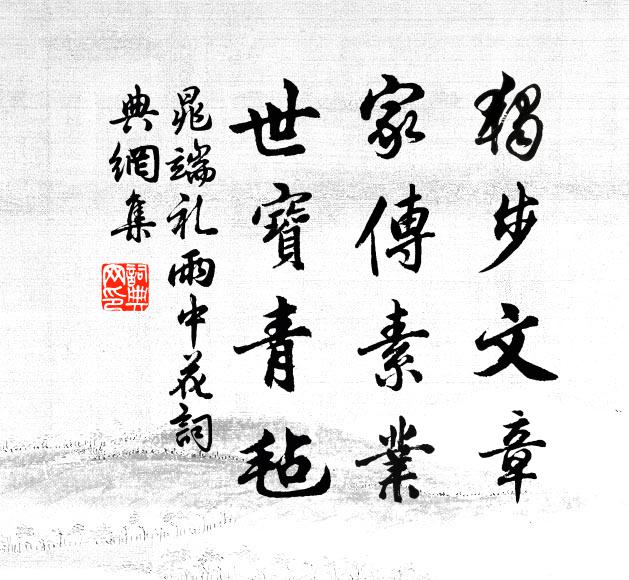 獨步文章
家傳素業
世寶青氈
晁端礼雨中花詞
典網集
詞典网印